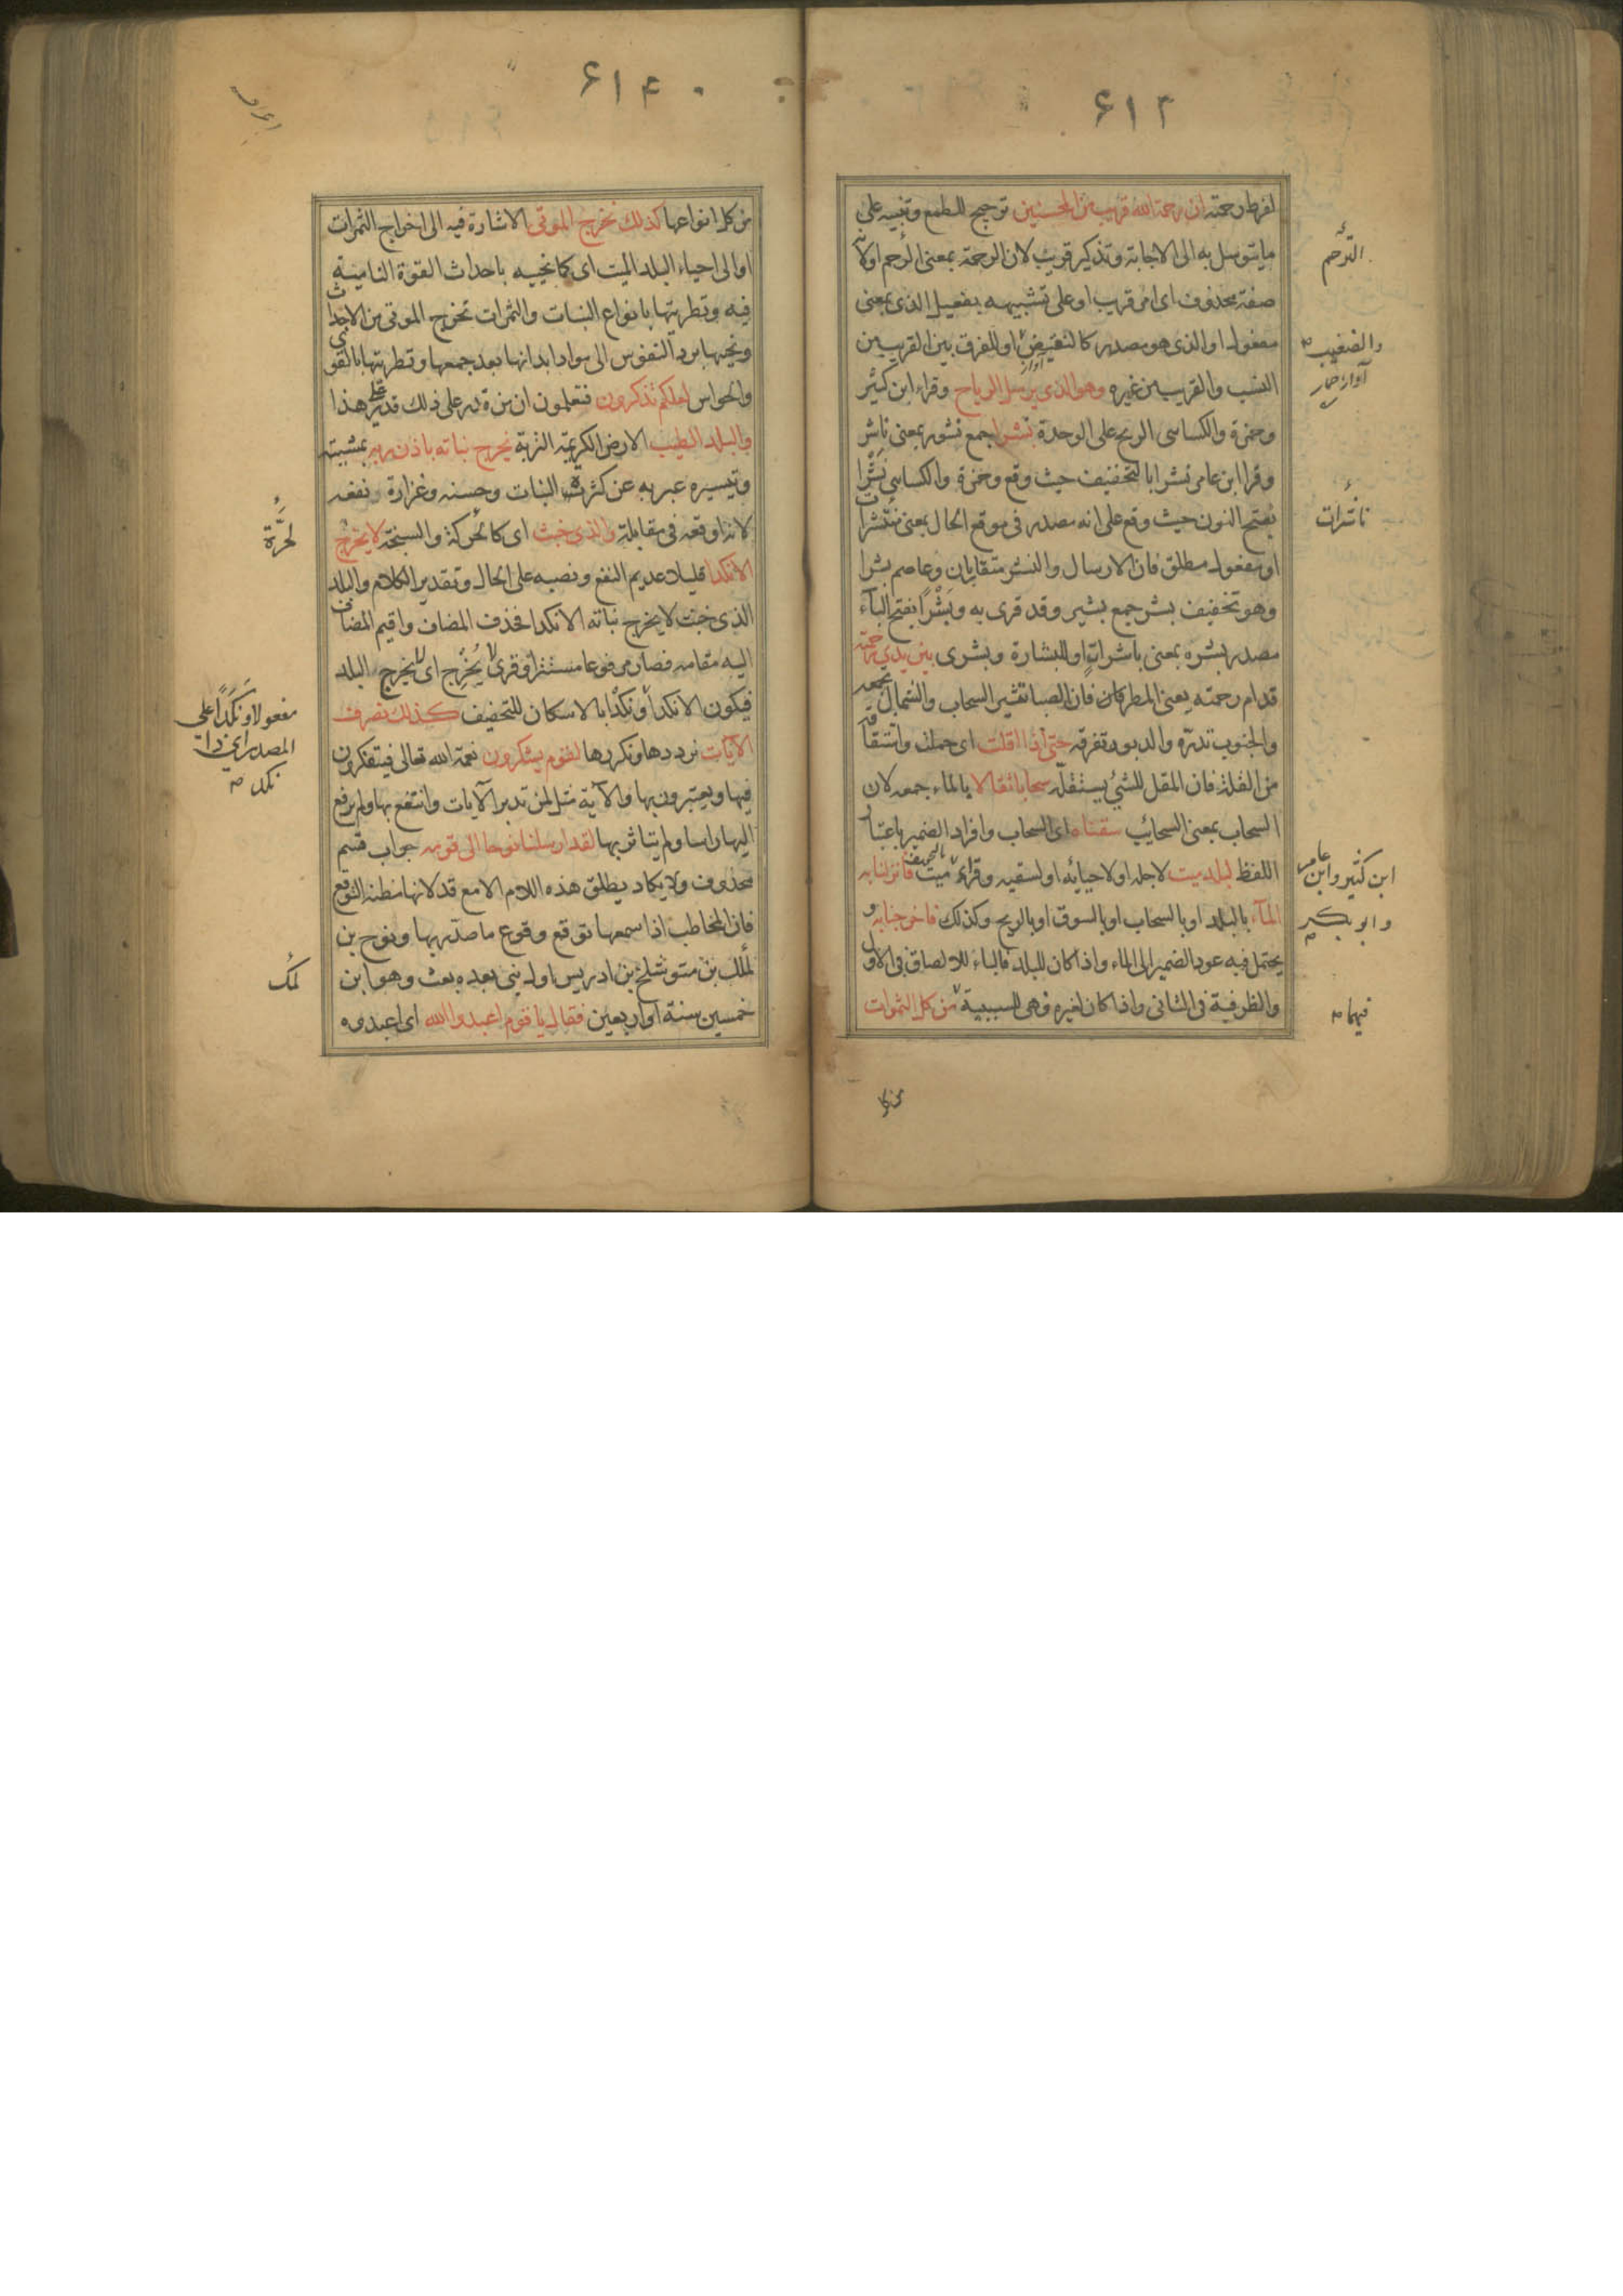 ۶۱۳
لفرط رحمته ان رحمة الله قريب من المحسنين ترجيح للطمع وتنبيه على
ما يتوسل به الى الاجابة وتذكير قريب لان الرحمة بمعنى الرحم اولانه
صفة محذوف اى امر قريب او على تشبيهه بفعيل الذى بمعنى
مفعول او الذى هو مصدر كالنقيض او للفرق بين القريب من
النسب والقريب من غيره وهو الذى يرسل الرياح وقراء ابن كثير
وحمزة والكساسى الريح على الوحدة نشرا جمع نشور بمعنى ناشر
وقرا ابن عامر نشرا بالتخفيف حيث وقع وحمزة والكساسى نَشْرًا
بفتح النون حيث وقع على انه مصدر فى موقع الحال بمعنى منتشرات
او مفعول مطلق فان الارسال والنشر متقاربان وعاصم بشرا
وهو تخفيف بشر جمع بشير وقد قرى به وبَشْرًا بفتح الباء
مصدر بشره بمعنى باشرات او للبشارة وبشرى بين يدى رحمته
قدام رحمته يعنى المطر كان فان الصبا تثير السحاب والشمال تجمعه
والجنوب تدره والدبور تفرقه حتى اذا اقلت اى حملت واشتقاقه
من القلة فان المقل للشئ يستقله سحابا ثقالا بالماء جمعه لان
السحاب بمعنى السحائب سقناه اى السحاب وافراد الضمير باعتبار
اللفظ لبلد ميت لاجله او لاحيائه او لسقيه وقراء ميت بالتخفيف فانزلنا به
الماء بالبلد او بالسحاب او بالسوق او بالريح وكذلك فاخرجنا به و
يحتمل فيه عود الضمير الى الماء واذا كان للبلد فالباء للالصاق فى الاول
والظرفية فى الثانى واذا كان لغيره فهى للسببية من كل الثمرات
الترحم
والضغيب
آواز
ناشرات
ابن كثير وابن عامر
وابو بكر
فيهما
من كل
۶۱۴
من كل انواعها كذلك نخرج الموتى الاشارة فيه الى اخراج الثمرات
او الى احياء البلد الميت اى كما نحييه باحداث القوة النامية
فيه وتطريتها بانواع النبات والثمرات نخرج الموتى من الاجداث
ونحيها برد النفوس الى مواد ابدانها بعد جمعها وتطريتها بالقوى
والحواس لعلكم تذكرون فتعلمون ان من قدر على ذلك قدر على هذا
والبلد الطيب الارض الكريمة التربة يخرج نباته باذن ربه بمشيته
وتيسيره عبر به عن كثرة النبات وحسنه وغزارة نفعه
لانه اوقعه فى مقابلة والذى خبث اى كالحركة والسبخة لا يخرج
الا نكدا قليلا عديم النفع ونصبه على الحال وتقدير الكلام والبلد
الذى خبث لا يخرج نباته الا نكدا فحذف المضاف واقيم المضاف
اليه مقامه فصار مرفوعا مستترا وقرى يُخرِج اى لا يخرج البلد
فيكون الا نكدا ونكْدا بالاسكان للتخفيف كذلك نصرف
الآيات نرددها ونكررها لقوم يشكرون نعمة الله تعالى فيتفكرون
فيها ويعتبرون بها والآية مثل لمن تدبر الآيات وانتفع بها ولمن لم يرفع
اليها راسا ولم يتاثر بها لقد ارسلنا نوحا الى قومه جواب قسم
محذوف ولا يكاد يطلق هذه اللام الا مع قد لانها مظنة التوقع
فان المخاطب اذا سمعها توقع وقوع ما صدر بها ونوح بن
لملك بن متوشلخ بن ادريس اول نبى بعده بعث وهو ابن
خمسين سنة او اربعين فقال يا قوم اعبدوا الله اى اعبدوه
لحَرَّة
مفعولا ونَكَدًا على
المصدر اى ذا
نكد
لمك